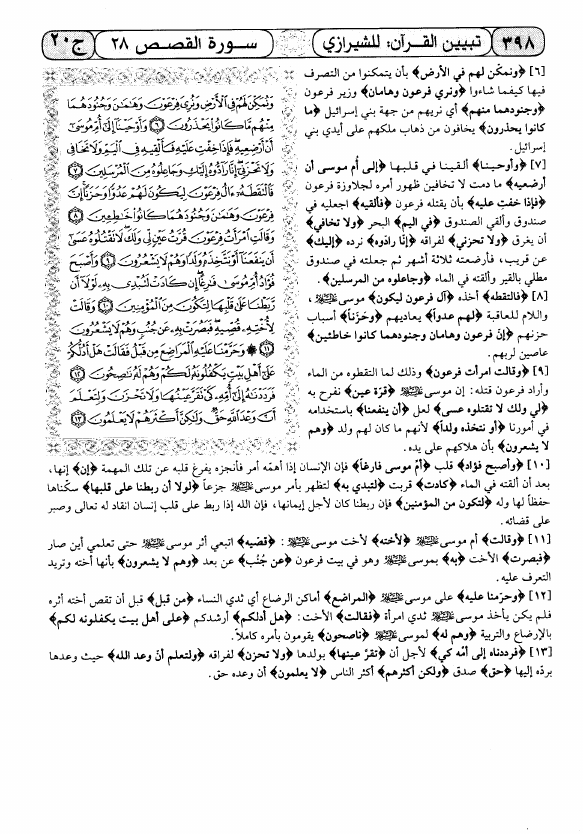 ٣٩٨
تبيين القرآن: للشيرازي
سورة القصص ٢٨
ج٢٠
[٦] ﴿ونمكن لهم في الأرض﴾ بأن يتمكنوا من التصرف
فيها كيفما شاءوا ﴿ونري فرعون وهامان﴾ وزير فرعون
﴿وجنودهما منهم﴾ أي نريهم من جهة بني إسرائيل ﴿ما
كانوا يحذرون﴾ يخافون من ذهاب ملكهم على أيدي بني
إسرائيل.
[٧] ﴿وأوحينا﴾ ألقينا في قلبها ﴿إلى أم موسى أن
أرضعيه﴾ ما دمت لا تخافين ظهور أمره لجلاوزة فرعون
﴿فإذا خفت عليه﴾ بأن يقتله فرعون ﴿فألقيه﴾ اجعليه في
صندوق وألقي الصندوق ﴿في اليم﴾ البحر ﴿ولا تخافي﴾
أن يغرق ﴿ولا تحزني﴾ لفراقه ﴿إنّا رادّوه﴾ نرده ﴿إليك﴾
عن قريب، فأرضعته ثلاثة أشهر ثم جعلته في صندوق
مطلي بالقير وألقته في الماء ﴿وجاعلوه من المرسلين﴾.
[٨] ﴿فالتقطه﴾ أخذه ﴿آل فرعون ليكون﴾ موسى ،
واللام للعاقبة ﴿لهم عدواً﴾ يعاديهم ﴿وحَزَناً﴾ أسباب
حزنهم ﴿إن فرعون وهامان وجنودهما كانوا خاطئين﴾
عاصين لربهم.
[٩] ﴿وقالت امرأت فرعون﴾ وذلك لما التقطوه من الماء
وأراد فرعون قتله: إن موسى ﴿قرّة عين﴾ نفرح به
﴿لي ولك لا تقتلوه عسى﴾ لعل ﴿أن ينفعنا﴾ باستخدامه
في أمورنا ﴿أو نتخذه ولداً﴾ لأنهم ما كان لهم ولد ﴿وهم
لا يشعرون﴾ بأن هلاكهم على يده.
وَنُمَكِّنَ لَهُمْ فِي الْأَرْضِ وَنُرِيَ فِرْعَوْنَ وَهَامَانَ وَجُنُودَهُمَا
مِنْهُم مَّا كَانُوا يَحْذَرُونَ ٦ وَأَوْحَيْنَا إِلَىٰ أُمِّ مُوسَىٰ
أَنْ أَرْضِعِيهِ فَإِذَا خِفْتِ عَلَيْهِ فَأَلْقِيهِ فِي الْيَمِّ وَلَا تَخَافِي
وَلَا تَحْزَنِي إِنَّا رَادُّوهُ إِلَيْكِ وَجَاعِلُوهُ مِنَ الْمُرْسَلِينَ ٧
فَالْتَقَطَهُ آلُ فِرْعَوْنَ لِيَكُونَ لَهُمْ عَدُوًّا وَحَزَنًا إِنَّ
فِرْعَوْنَ وَهَامَانَ وَجُنُودَهُمَا كَانُوا خَاطِئِينَ ٨
وَقَالَتِ امْرَأَتُ فِرْعَوْنَ قُرَّتُ عَيْنٍ لِّي وَلَكَ لَا تَقْتُلُوهُ عَسَىٰ
أَن يَنفَعَنَا أَوْ نَتَّخِذَهُ وَلَدًا وَهُمْ لَا يَشْعُرُونَ ٩ وَأَصْبَحَ
فُؤَادُ أُمِّ مُوسَىٰ فَارِغًا إِن كَادَتْ لَتُبْدِي بِهِ لَوْلَا أَن
رَّبَطْنَا عَلَىٰ قَلْبِهَا لِتَكُونَ مِنَ الْمُؤْمِنِينَ ١٠ وَقَالَتْ
لِأُخْتِهِ قُصِّيهِ فَبَصُرَتْ بِهِ عَن جُنُبٍ وَهُمْ لَا يَشْعُرُونَ
١١ وَحَرَّمْنَا عَلَيْهِ الْمَرَاضِعَ مِن قَبْلُ فَقَالَتْ هَلْ أَدُلُّكُمْ
عَلَىٰ أَهْلِ بَيْتٍ يَكْفُلُونَهُ لَكُمْ وَهُمْ لَهُ نَاصِحُونَ ١٢
فَرَدَدْنَاهُ إِلَىٰ أُمِّهِ كَيْ تَقَرَّ عَيْنُهَا وَلَا تَحْزَنَ وَلِتَعْلَمَ
أَنَّ وَعْدَ اللَّهِ حَقٌّ وَلَٰكِنَّ أَكْثَرَهُمْ لَا يَعْلَمُونَ ١٣
[١٠] ﴿وأصبح فؤاد﴾ قلب ﴿أمّ موسى فارغاً﴾ فإن الإنسان إذا أهمّه أمر فأنجزه يفرغ قلبه عن تلك المهمة ﴿إن﴾ إنها،
بعد أن ألقته في الماء ﴿كادت﴾ قربت ﴿لتبدي به﴾ لتظهر بأمر موسى جزعاً ﴿لولا أن ربطنا على قلبها﴾ سكّناها
حفظاً لها وله ﴿لتكون من المؤمنين﴾ فإن ربطنا كان لأجل إيمانها، فإن الله إذا ربط على قلب إنسان انقاد له تعالى وصبر
على قضائه.
[١١] ﴿وقالت﴾ أم موسى ﴿لأخته﴾ لأخت موسى : ﴿قصّيه﴾ اتبعي أثر موسى حتى تعلمي أين صار
﴿فبصرت﴾ الأخت ﴿به﴾ بموسى وهو في بيت فرعون ﴿عن جُنُب﴾ عن بعد ﴿وهم لا يشعرون﴾ بأنها أخته وتريد
التعرف عليه.
[١٢] ﴿وحرّمنا عليه﴾ على موسى ﴿المراضع﴾ أماكن الرضاع أي ثدي النساء ﴿من قبل﴾ قبل أن تقص أخته أثره
فلم يكن يأخذ موسى ثدي امرأة ﴿فقالت﴾ الأخت: ﴿هل أدلكم﴾ أرشدكم ﴿على أهل بيت يكفلونه لكم﴾
بالإرضاع والتربية ﴿وهم له﴾ لموسى ﴿ناصحون﴾ يقومون بأمره كاملاً.
[١٣] ﴿فرددناه إلى أمّه كي﴾ لأجل أن ﴿تقرّ عينها﴾ بولدها ﴿ولا تحزن﴾ لفراقه ﴿ولتعلم أنّ وعد الله﴾ حيث وعدها
بردّه إليها ﴿حق﴾ صدق ﴿ولكن أكثرهم﴾ أكثر الناس ﴿لا يعلمون﴾ أن وعده حق.